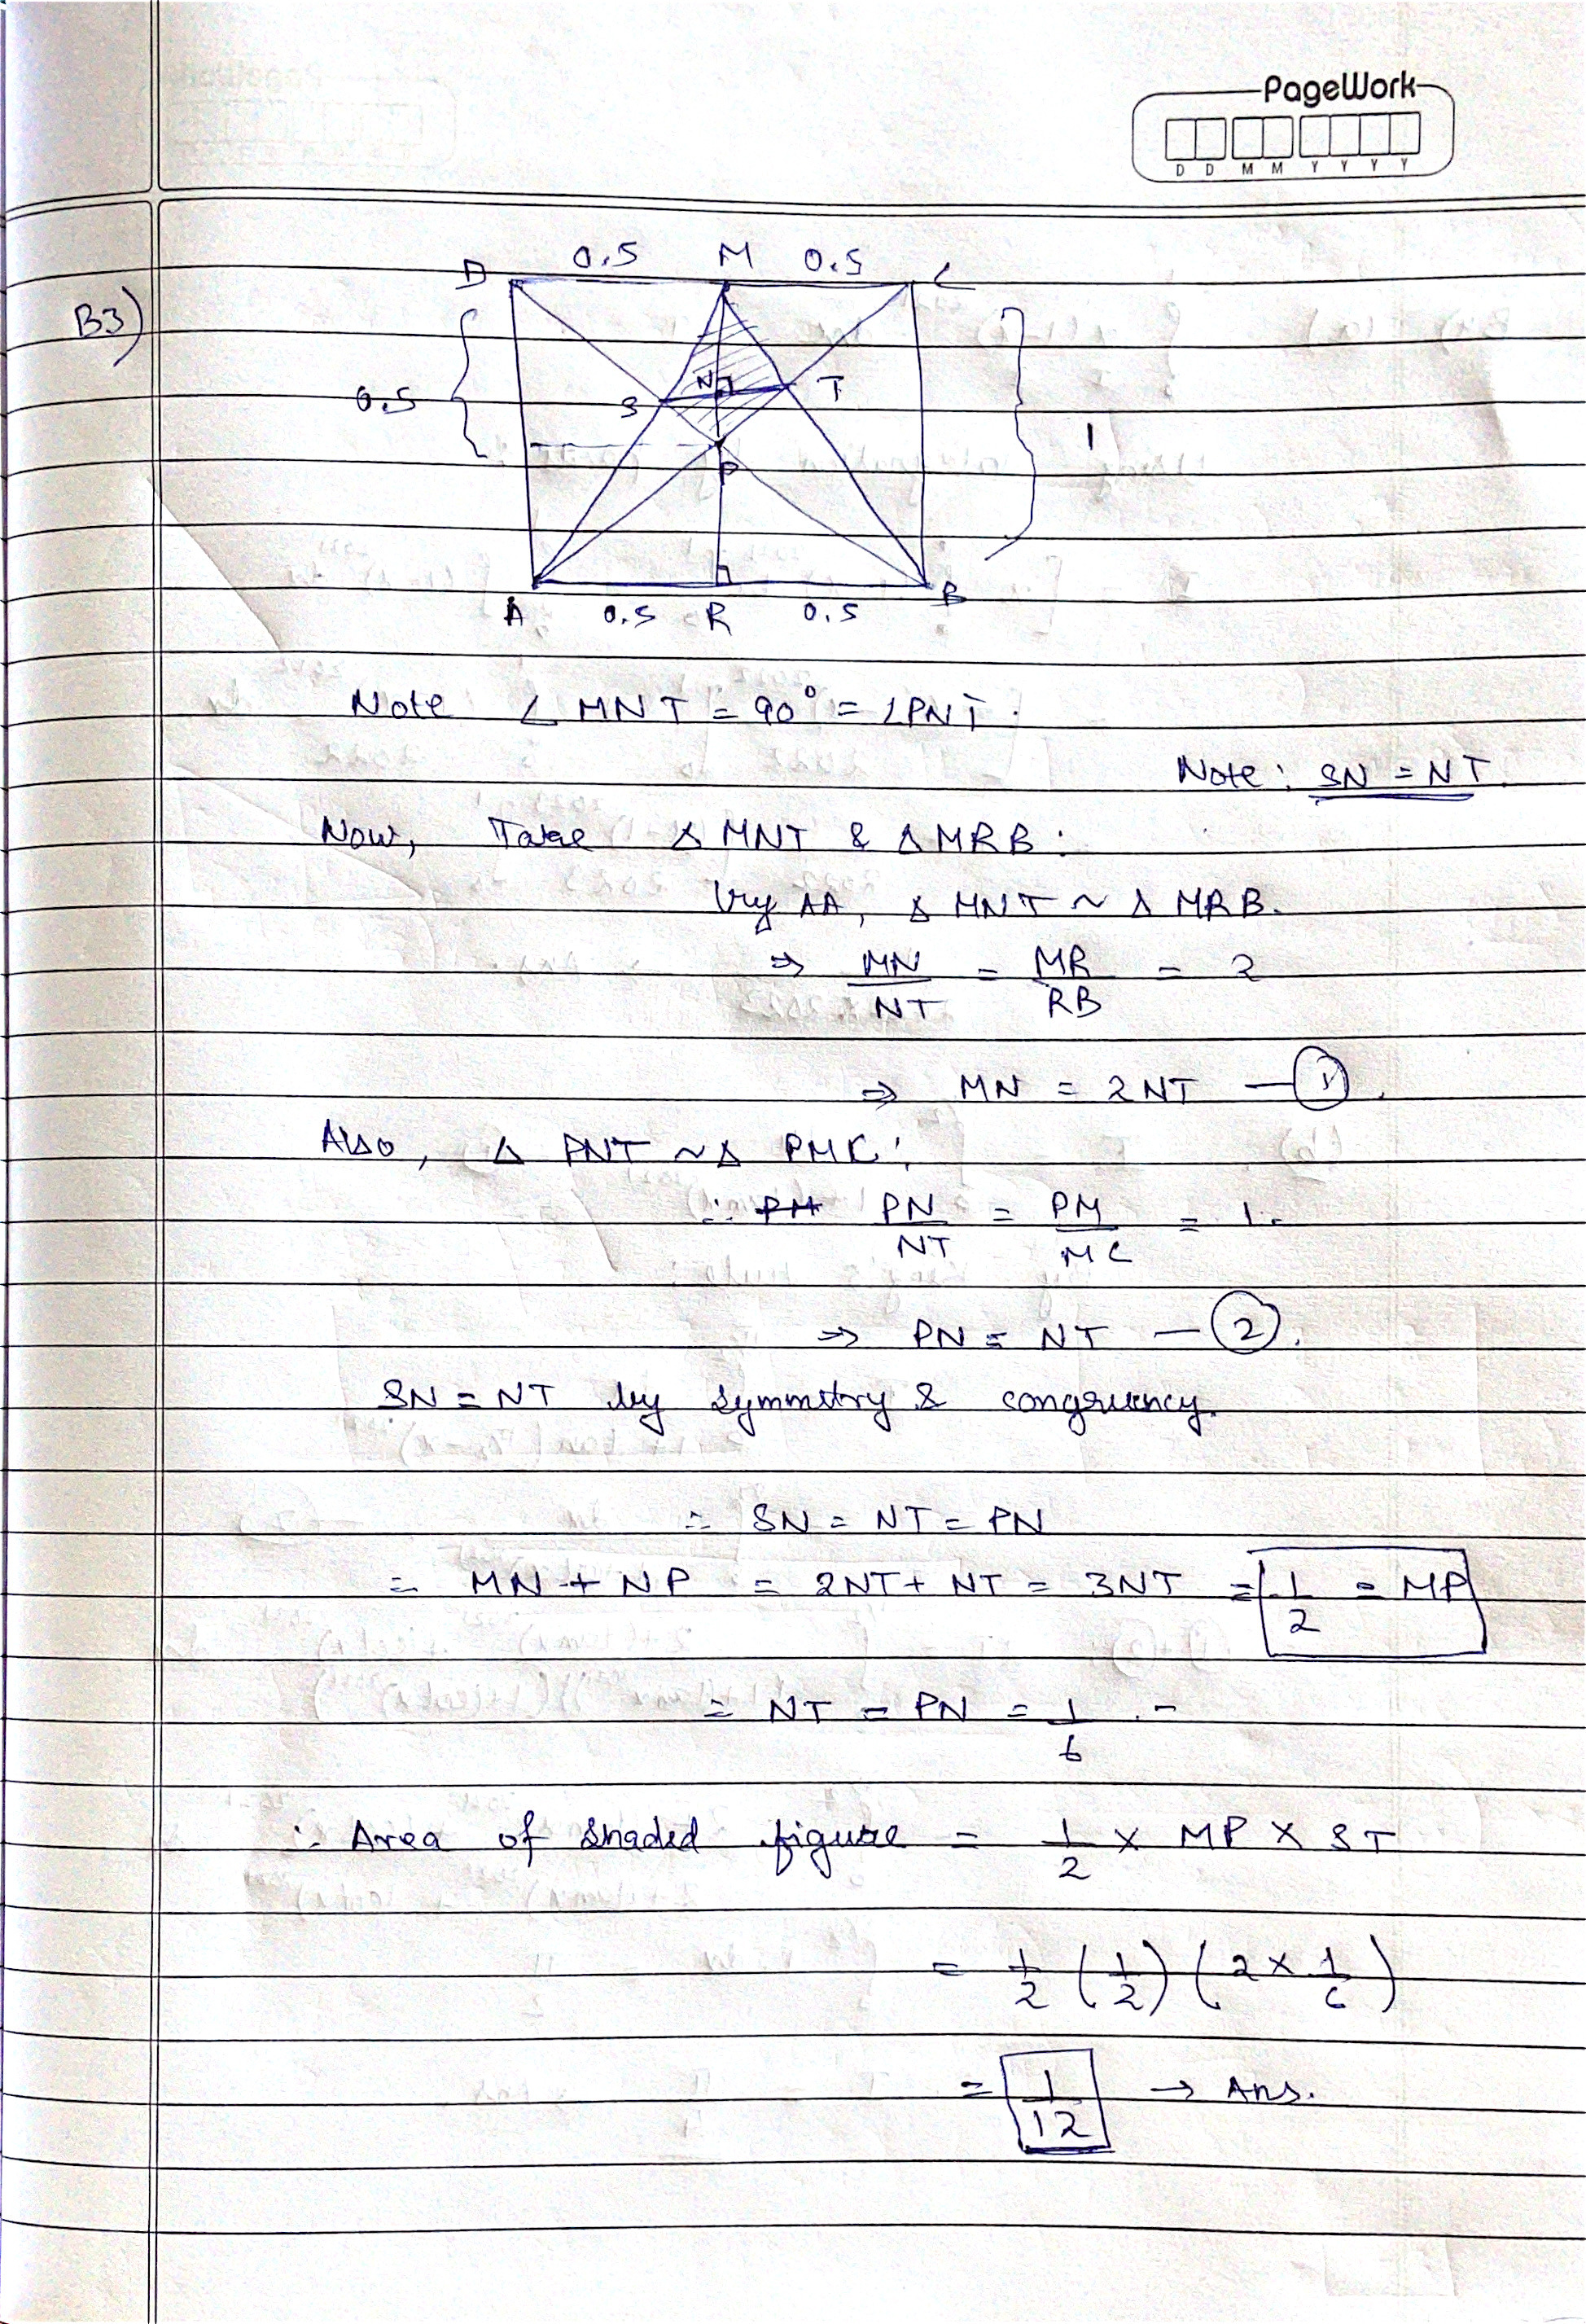 PageWork
D D M M Y Y Y Y
B3)
D 0.5 M 0.5 C
0.5
S N T
1
P
A 0.5 R 0.5 B
Note ∠MNT = 90° = ∠PNT.
Note: SN = NT.
Now, Take Δ MNT & Δ MRB:
by AA, Δ MNT ~ Δ MRB.
⇒ MN/NT = MR/RB = 2
⇒ MN = 2NT — ①.
Also, Δ PNT ~ Δ PMC:
∴ PN/NT = PM/MC = 1.
⇒ PN = NT — ②.
SN = NT by symmetry & congruency.
∴ SN = NT = PN
= MN + NP = 2NT + NT = 3NT = 1/2 = MP
= NT = PN = 1/6 .-
∴ Area of shaded figure = 1/2 × MP × ST
= 1/2 (1/2) (2 × 1/6)
= 1/12 → Ans.